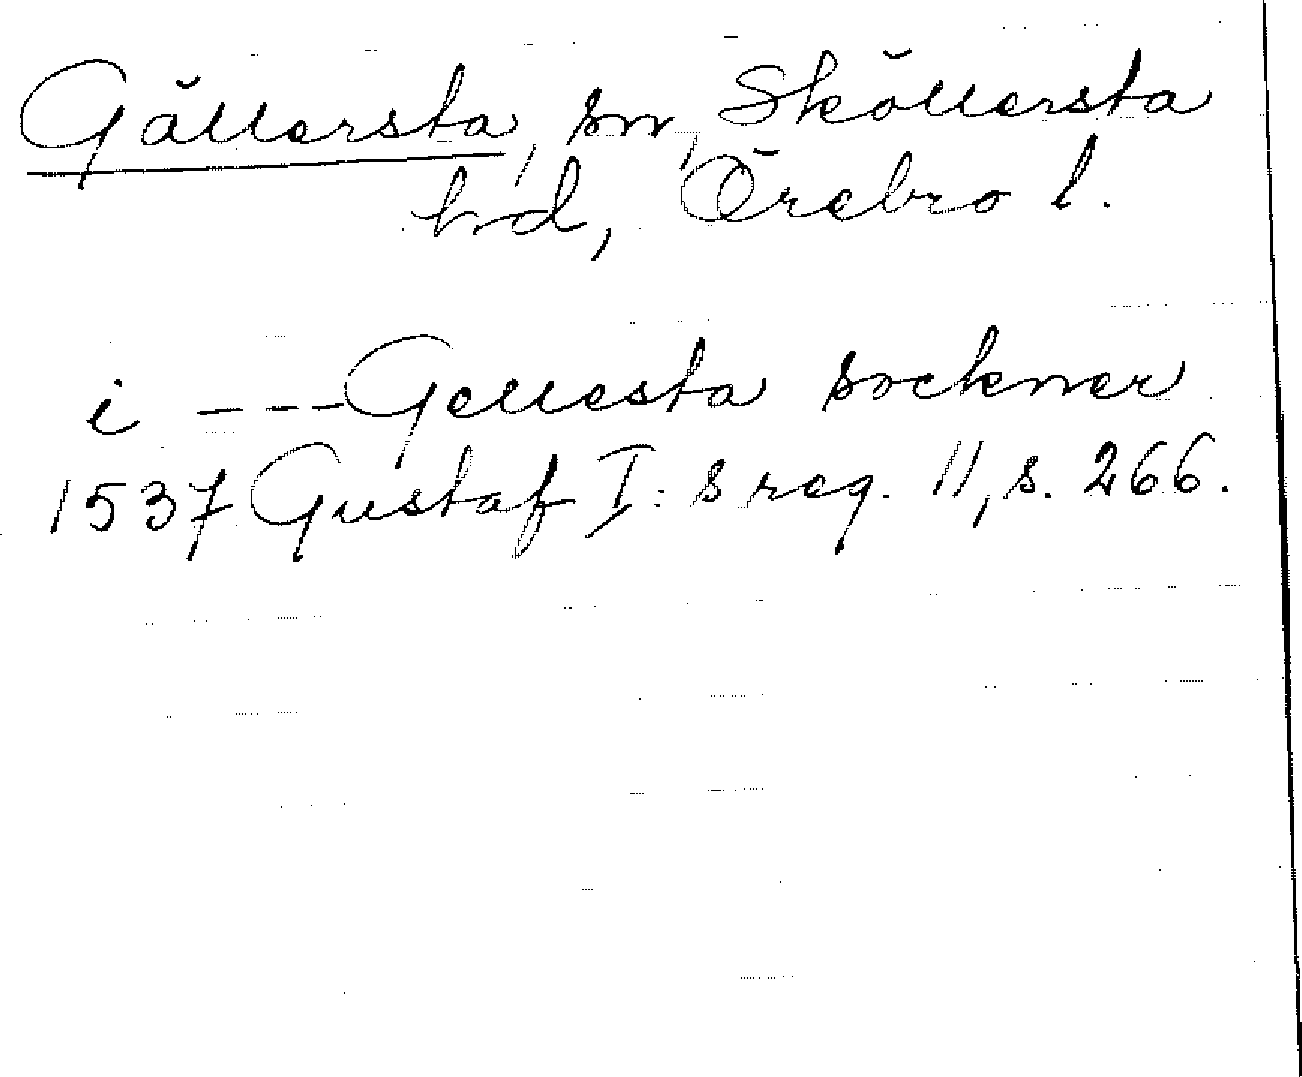 Gällersta, sn, Sköllersta
hd, Örebro l.
i --- Gellesta sockner
1537 Gustaf I:s reg. 11, s. 266.